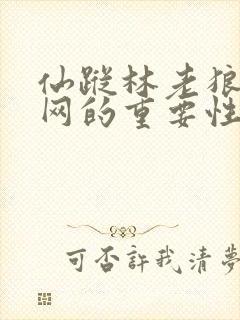 仙踪林老狼
网的重要性
可否許我清夢